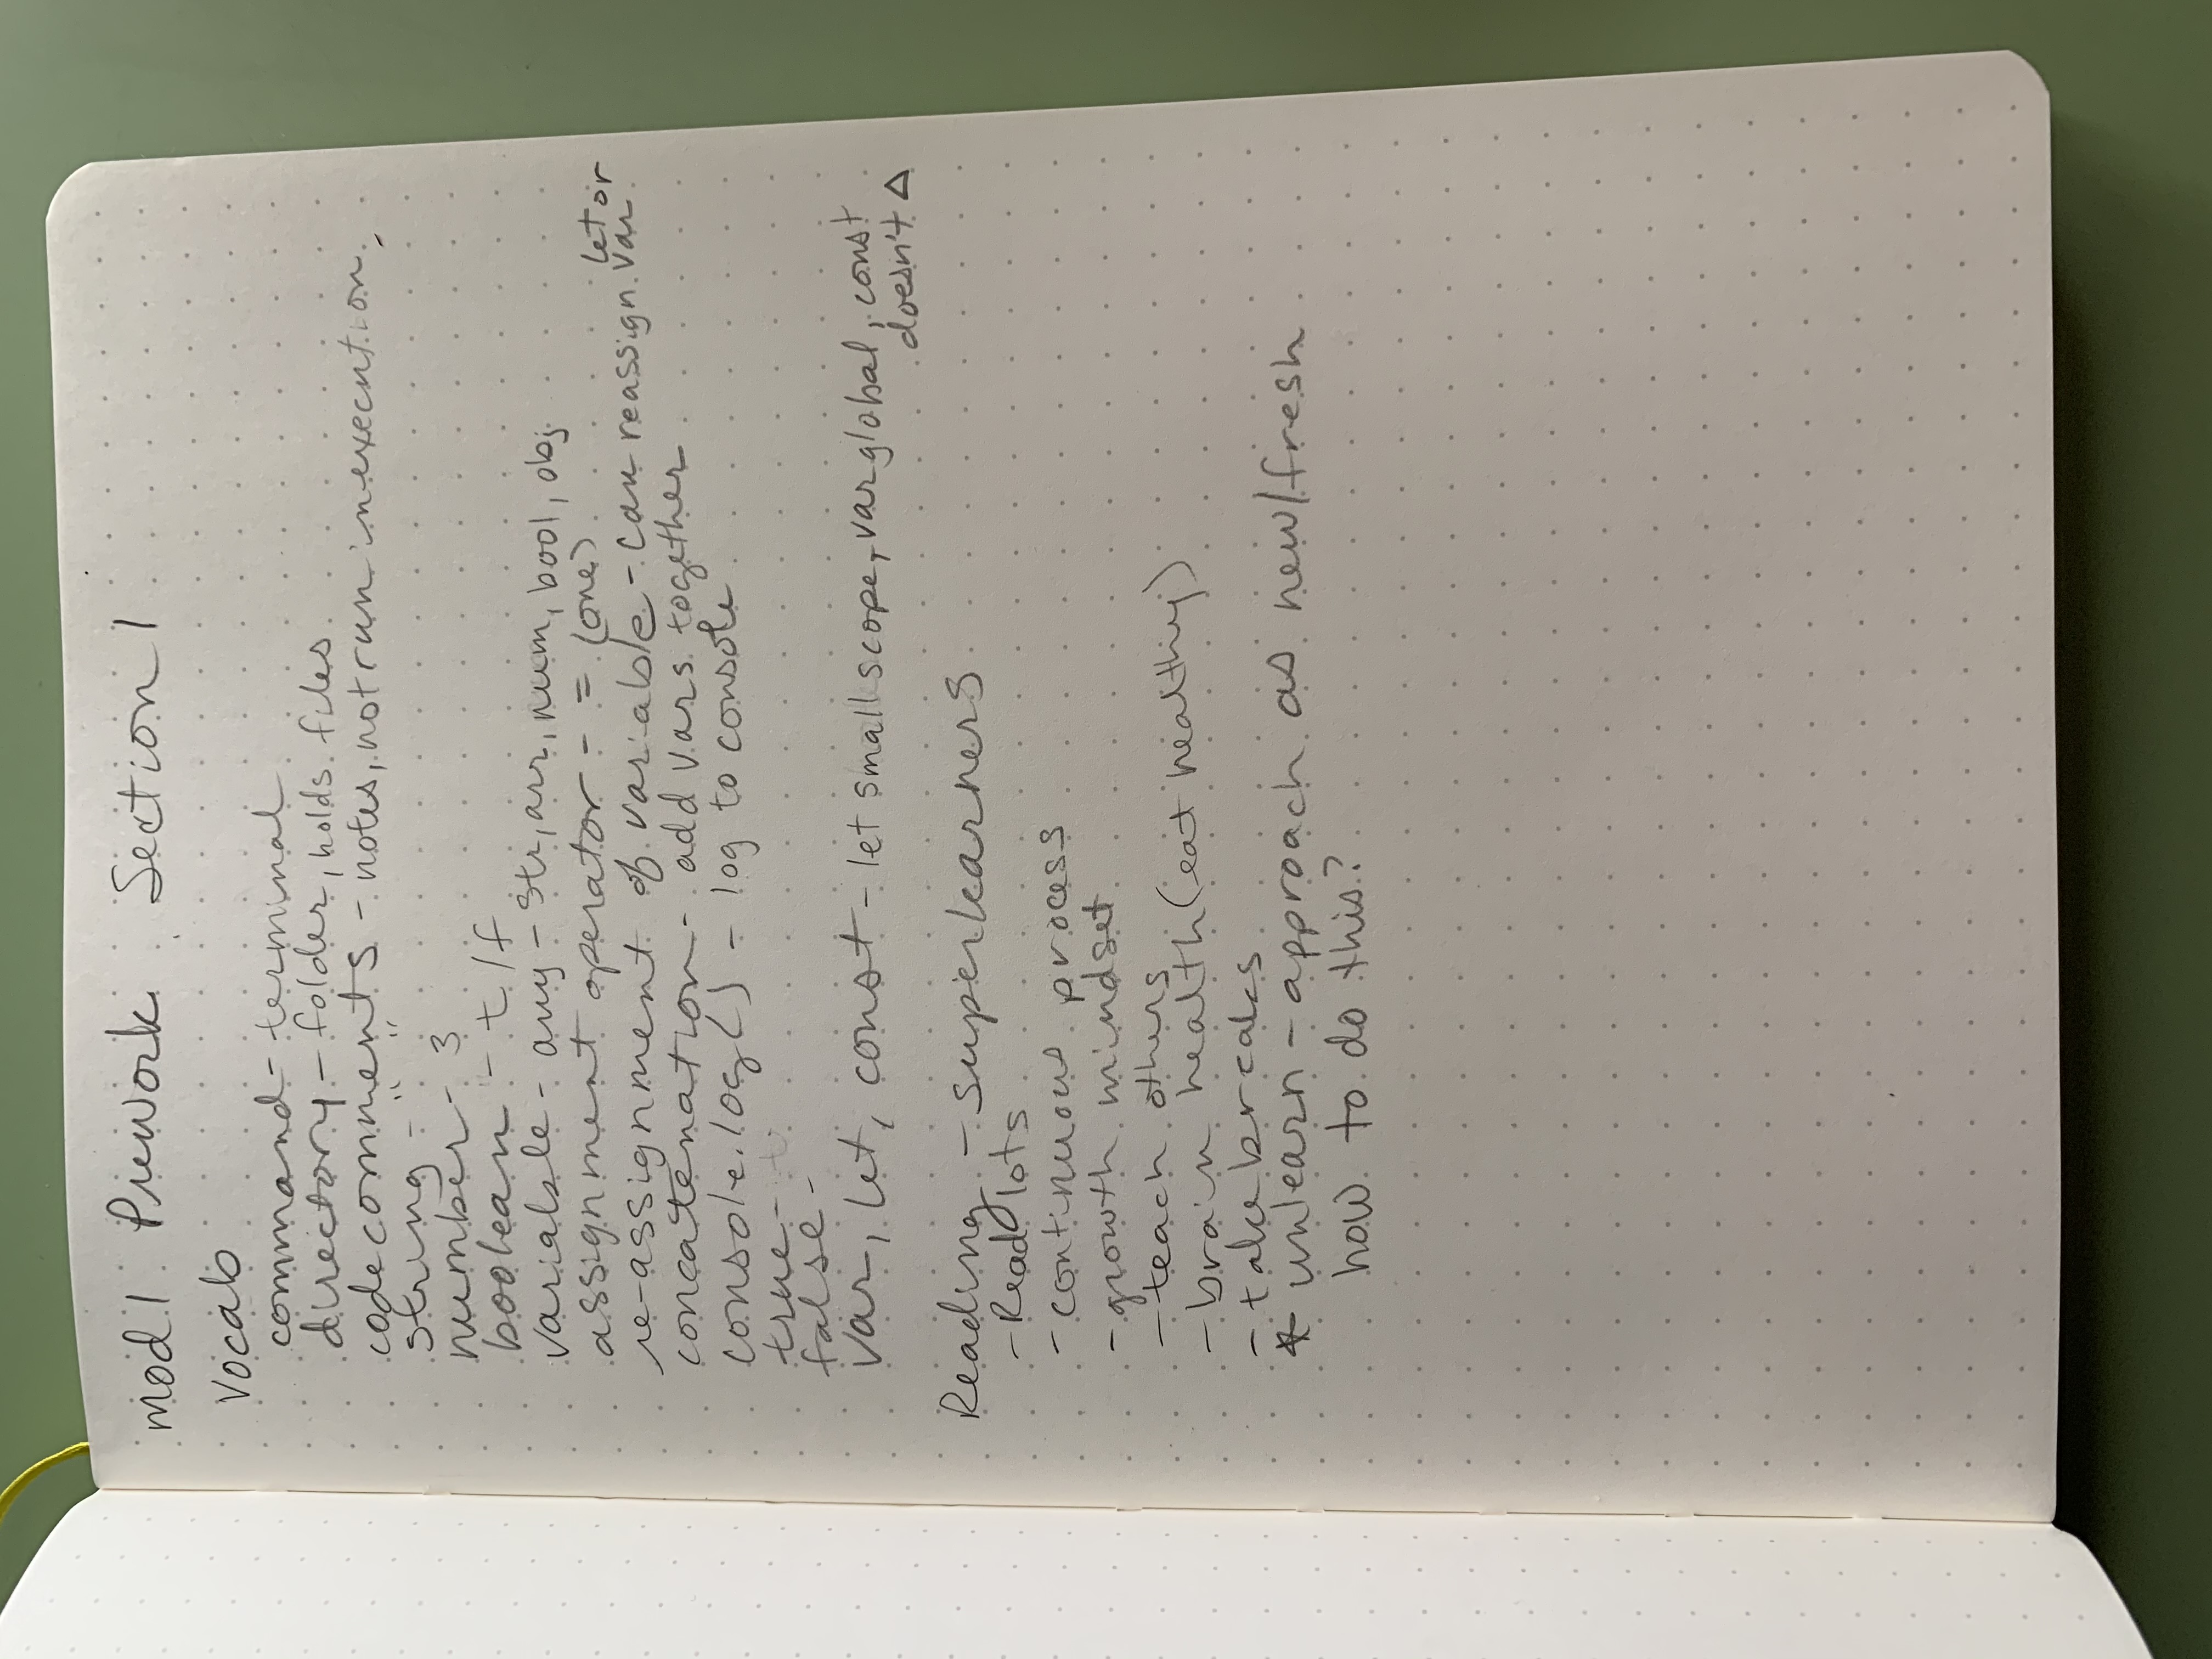 mod 1 Prework Section 1
Vocab
command - terminal
directory - folder, holds files
code comments - notes, not run in execution
string - " "
number - 3
boolean - t/f
variable - any - str, arr, num, bool, obj
assignment operator - = (one)
re-assignment of variable - can reassign let or var
concatenation - add vars together
console.log() - log to console
true - t
false -
var, let, const - let small scope, var global, const
doesn't Δ
Reading - superlearners
- Read lots
- continuous process
- growth mindset
- teach others
- brain health (eat healthy)
- take breaks
* unlearn - approach as new/fresh
how to do this?